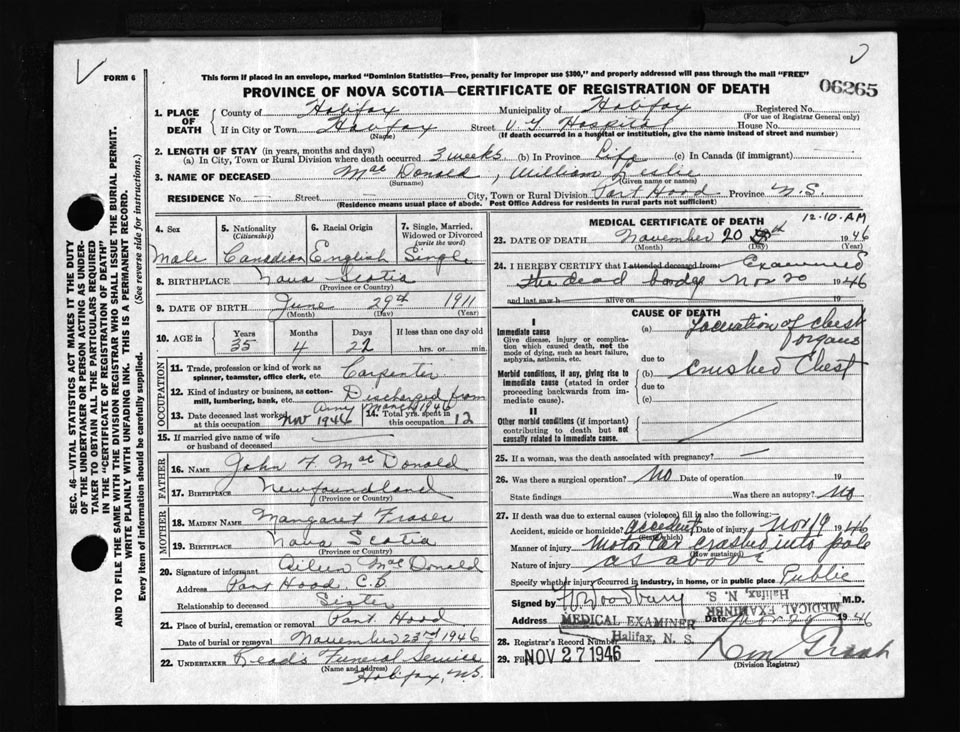 FORM 6
This form if placed in an envelope, marked "Dominion Statistics—Free, penalty for improper use $300," and properly addressed will pass through the mail "FREE"
PROVINCE OF NOVA SCOTIA—CERTIFICATE OF REGISTRATION OF DEATH
06265
1. PLACE OF DEATH
County of Halifax Municipality of Halifax Registered No.
(For use of Registrar General only)
If in City or Town Halifax Street V G Hospital House No.
(Name) (If death occurred in a hospital or institution, give the name instead of street and number)
2. LENGTH OF STAY (in years, months and days)
(a) In City, Town or Rural Division where death occurred 3 weeks (b) In Province Life (c) In Canada (if immigrant)
3. NAME OF DECEASED Mac Donald, William Leslie
(Surname) (Given name or names)
RESIDENCE No. Street City, Town or Rural Division Port Hood Province N.S.
(Residence means usual place of abode. Post Office Address for residents in rural parts not sufficient)
4. Sex
Male
5. Nationality (Citizenship)
Canadian
6. Racial Origin
English
7. Single, Married, Widowed or Divorced (write the word)
Single
8. BIRTHPLACE Nova Scotia
(Province or Country)
9. DATE OF BIRTH June 29th 1911
(Month) (Day) (Year)
10. AGE in Years Months Days If less than one day old
35 4 22 hrs. or min.
OCCUPATION
11. Trade, profession or kind of work as spinner, teamster, office clerk, etc. Carpenter
12. Kind of industry or business, as cotton-mill, lumbering, bank, etc. Discharged from Army March 1946
13. Date deceased last worked at this occupation Nov 1944
14. Total yrs. spent in this occupation 12
15. If married give name of wife or husband of deceased
FATHER
16. NAME John F. Mac Donald
17. BIRTHPLACE Newfoundland
(Province or Country)
MOTHER
18. MAIDEN NAME Margaret Fraser
19. BIRTHPLACE Nova Scotia
(Province or Country)
20. Signature of informant Aileen Mac Donald
Address Port Hood C.B.
Relationship to deceased Sister
21. Place of burial, cremation or removal Port Hood
Date of burial or removal November 23rd 1946
22. UNDERTAKER Read's Funeral Service
(Name and address) Halifax, N.S.
MEDICAL CERTIFICATE OF DEATH
12.10 AM
23. DATE OF DEATH November 20th 1946
(Month) (Day) (Year)
24. I HEREBY CERTIFY that I attended deceased from: Examined
the dead body Nov 20 1946
and last saw h alive on 19
CAUSE OF DEATH
I
Immediate cause
Give disease, injury or complication which caused death, not the mode of dying, such as heart failure, asphyxia, asthenia, etc.
(a) of chest organs
due to
Morbid conditions, if any, giving rise to immediate cause (stated in order proceeding backwards from immediate cause).
(b) Crushed Chest
due to
(c)
II
Other morbid conditions (if important) contributing to death but not causally related to immediate cause.
25. If a woman, was the death associated with pregnancy?
26. Was there a surgical operation? No Date of operation 19
State findings Was there an autopsy? No
27. If death was due to external causes (violence) fill in also the following:
Accident, suicide or homicide? accident Date of injury Nov 19 1946
(State which)
Manner of injury Motor Car crashed into pole
(How sustained)
Nature of injury as above
Specify whether injury occurred in industry, in home, or in public place Public
Signed by Woodbury M.D.
MEDICAL EXAMINER
Halifax, N. S.
Address MEDICAL EXAMINER Date Nov 20 1946
Halifax, N. S.
28. Registrar's Record Number
29. Filed NOV 27 1946
(Division Registrar)
SEC. 46—VITAL STATISTICS ACT MAKES IT THE DUTY OF THE UNDERTAKER OR PERSON ACTING AS UNDERTAKER TO OBTAIN ALL THE PARTICULARS REQUIRED IN THE "CERTIFICATE OF REGISTRATION OF DEATH" AND TO FILE THE SAME WITH THE DIVISION REGISTRAR WHO SHALL ISSUE THE BURIAL PERMIT.
WRITE PLAINLY WITH UNFADING INK. THIS IS A PERMANENT RECORD.
Every item of information should be carefully supplied. (See reverse side for instructions.)